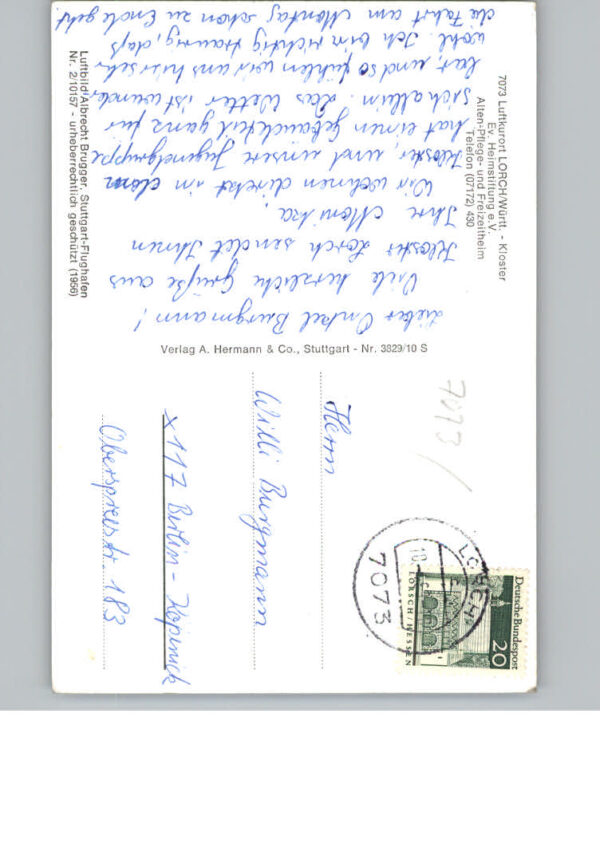 7073 Luftkurort LORCH/Württ. - Kloster
Ev. Heimstiftung e.V.
Alten-Pflege- und Freizeitheim
Telefon (07172) 430
Lieber Onkel Burgmann!
Viele herzliche Grüße aus
Kloster Lorch sendet Ihnen
Ihre Monika.
Wir wohnen direkt in dem
Kloster, und unsere Jugendgruppe
hat einen Gebäudeteil ganz für
sich allein. Das Wetter ist wunder-
bar, und so fühlen wir uns hier sehr
wohl. Ich bin richtig traurig, daß
die Fahrt am Montag schon zu Ende geht.
Luftbild Albrecht Brugger, Stuttgart-Flughafen
Nr. 2/10157 - urheberrechtlich geschützt (1966)
Verlag A. Hermann & Co., Stuttgart - Nr. 3829/10 S
7073
LORCH
7073
Deutsche Bundespost
20
LORSCH/HESSEN
Herrn
Willi Burgmann
x 117 Berlin-Köpenick
Oberspreestr. 183